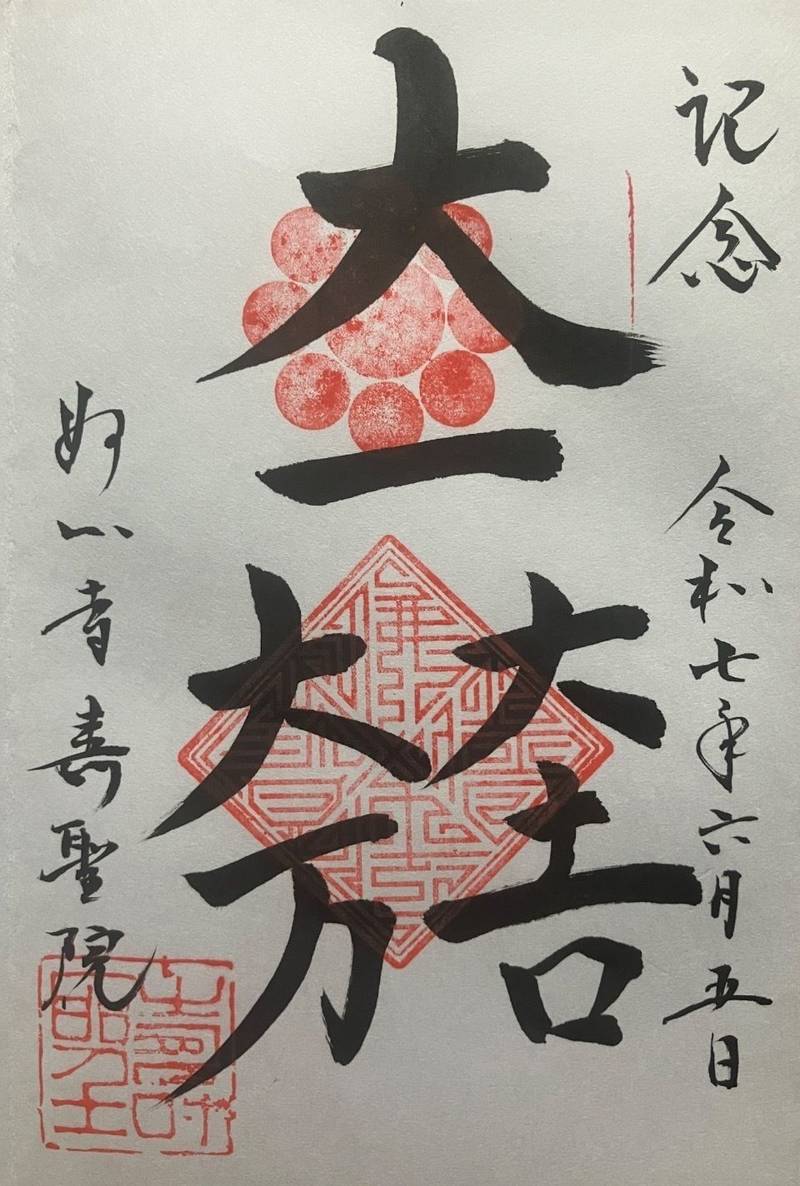 記念
令和七年六月五日
大一
大万
大吉
妙心寺
寿聖院